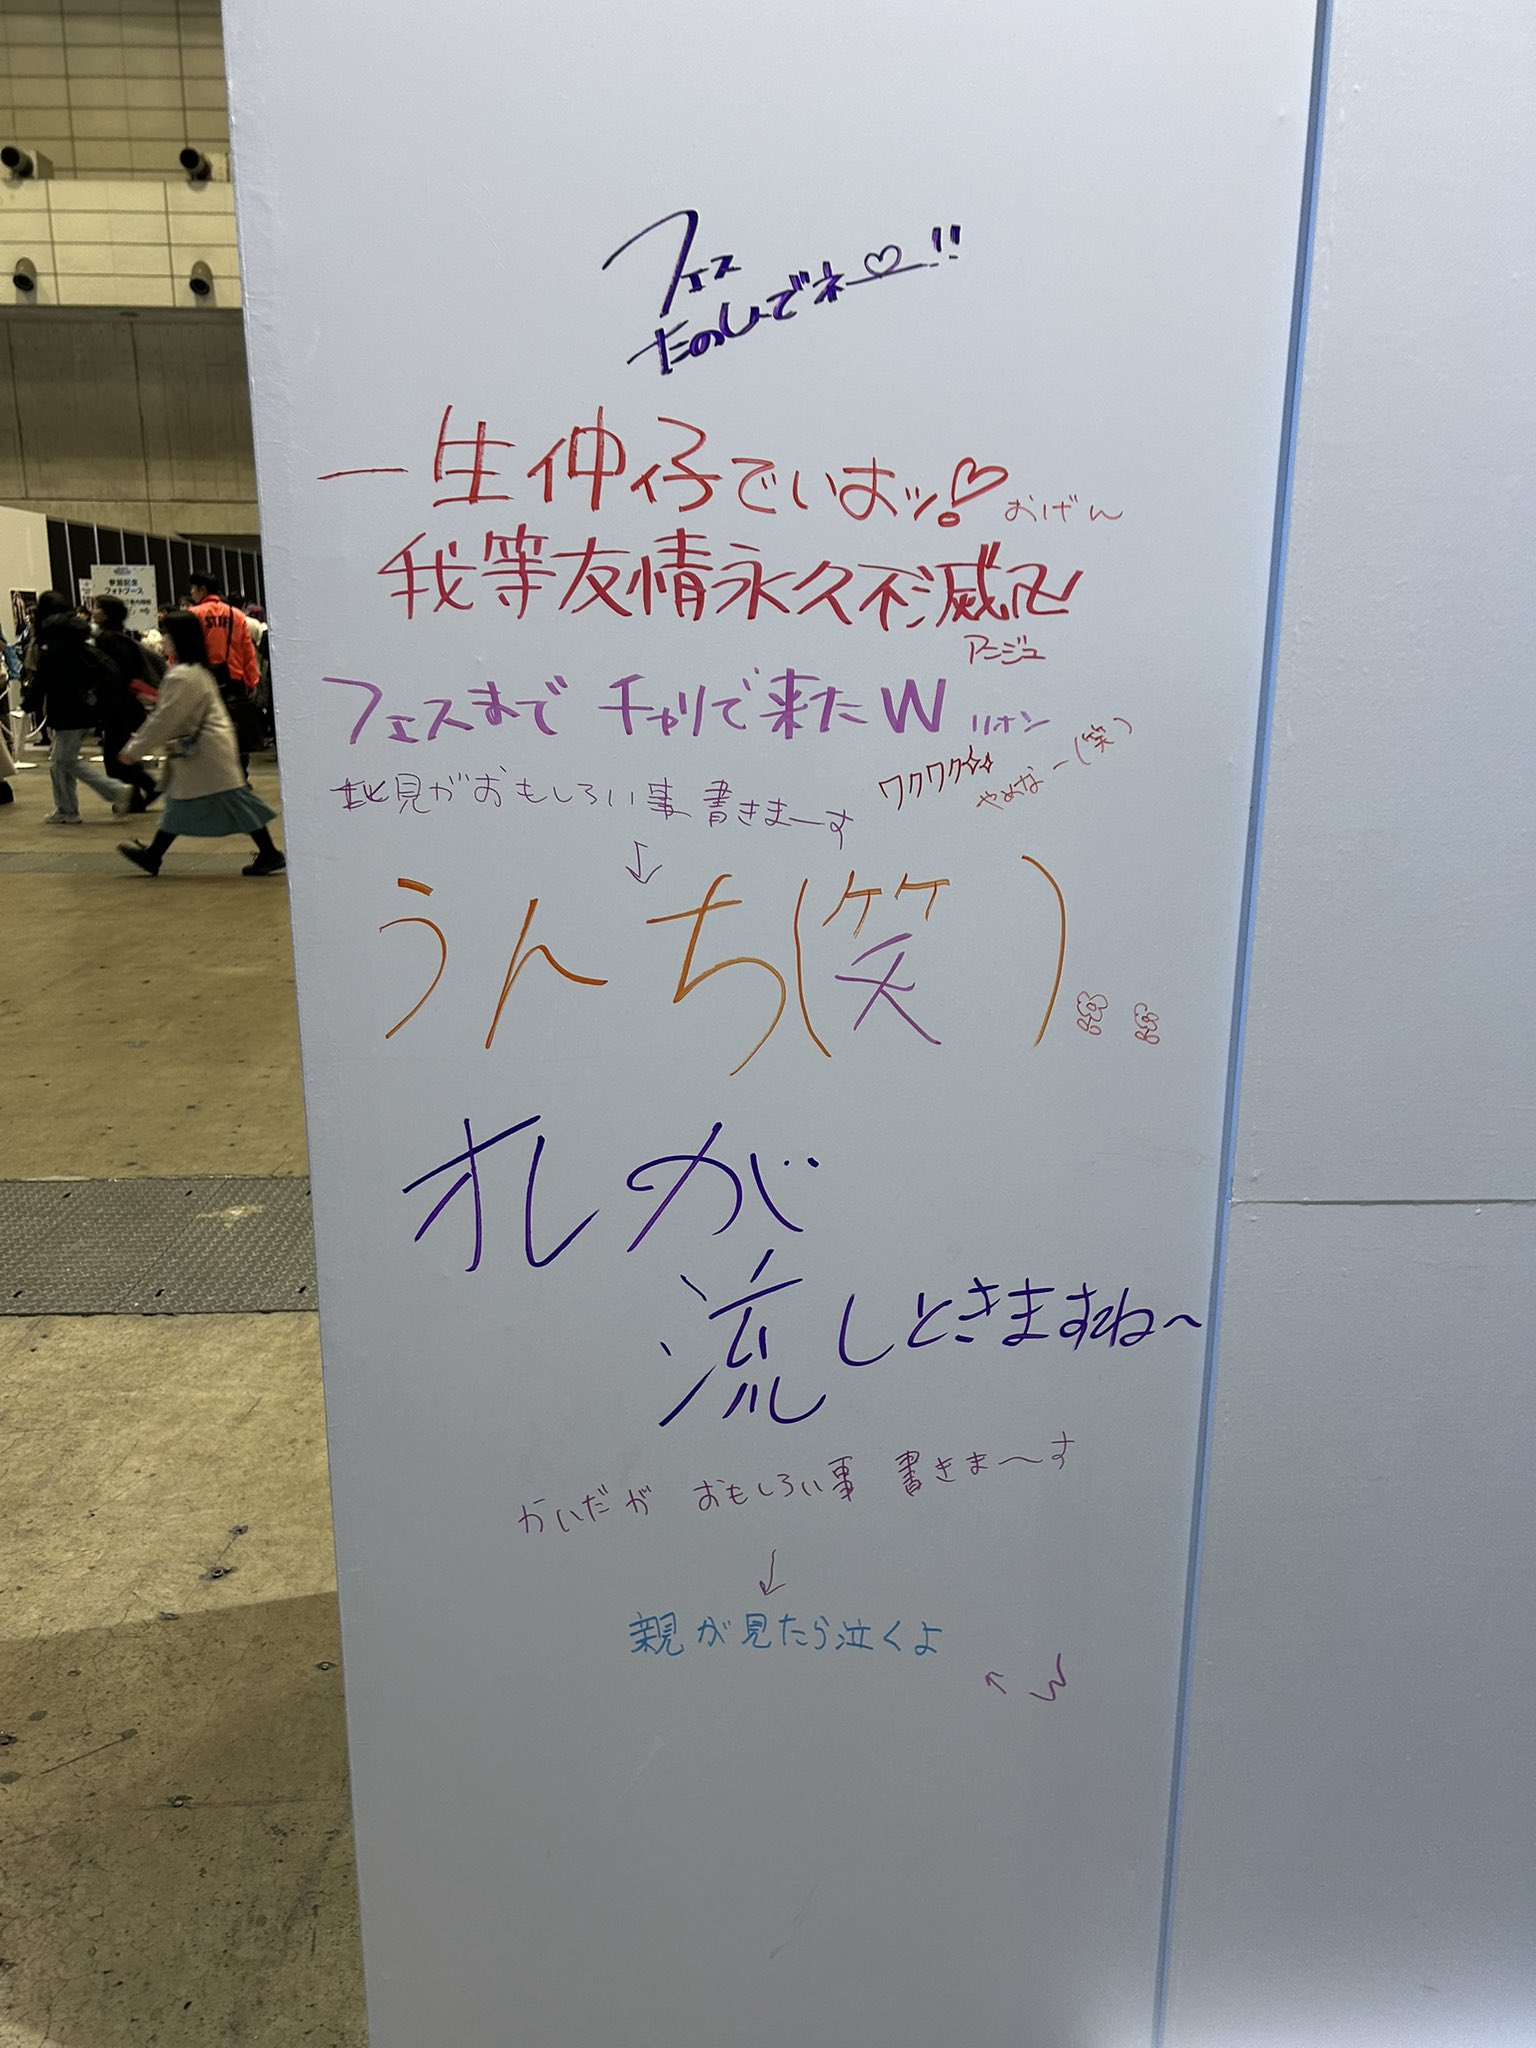 参加記念
フォトブース
STAFF
フェス
たのしーでネー♡!!
一生仲仔でいおッ!♡ おげん
我等友情永久不滅卍
アンジュ
フェスまでチャリで来たW リオン
ワクワク✧✧
やめなー(笑)
見がおもしろい事書きまーす
↓
うんち(笑)
オレが
流しときますね〜
かいだが おもしろい事 書きま〜す
↓
親が見たら泣くよ